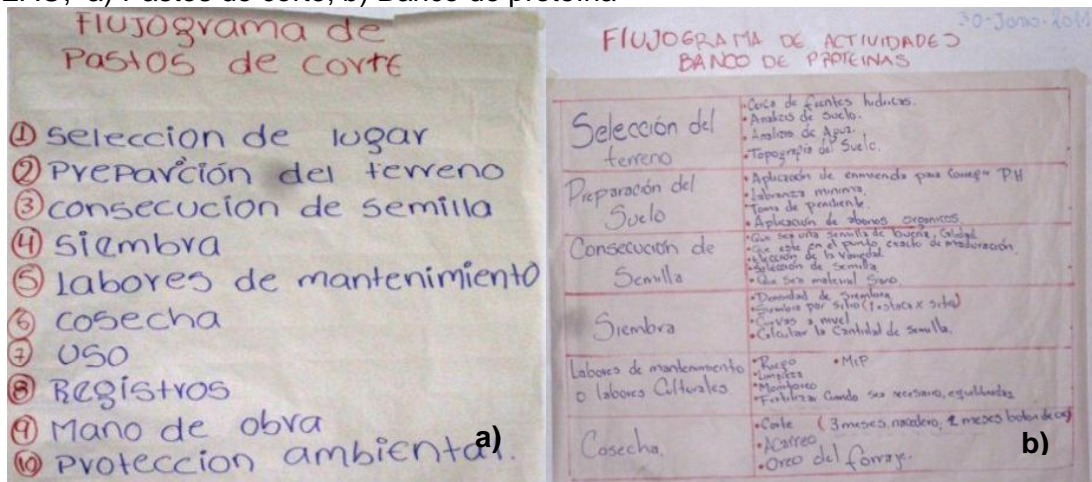 a) Pastos de corte; b) Banco de proteína
Flujograma de
Pastos de corte
① seleccion de lugar
② Preparción del terreno
③ consecucion de semilla
④ siembra
⑤ Labores de mantenimiento
⑥ cosecha
⑦ uso
⑧ Registros
⑨ Mano de obra
⑩ Proteccion ambiental.
a)
30-Junio-201
FlUJOGRAMA DE ACTIVIDADES
BANCO DE PROTEINAS
Selección del
terreno
• Cerca de fuentes hidricas.
• Analisis de Suelo.
• Analisis de Agua.
• Topografia del Suelo.
Preparación del
Suelo
• Aplicación de enmienda para Corregir PH
• Labranza minima.
• Toma de pendiente.
• Aplicación de abonos organicos.
Consecución de
Semilla
• Que sea una semilla de buena Calidad
• Que este en el punto exacto de maduración
• Elección de la Variedad
• Selección de Semilla
• Que Sea material Sano.
Siembra
• Densidad de Siembra
• Siembra por sitio (1 estaca x sitio)
• Curvas a nivel
• Calcular la Cantidad de Semilla.
Labores de mantenimiento
o labores Culturales.
• Riego • MIP
• Limpieza
• Monitoreo
• Fertilizar Cuando sea necesario,
Cosecha.
• Corte (3 meses, nacedero, 2 meses boton de oro)
• Acarreo
• Oreo del forraje.
b)